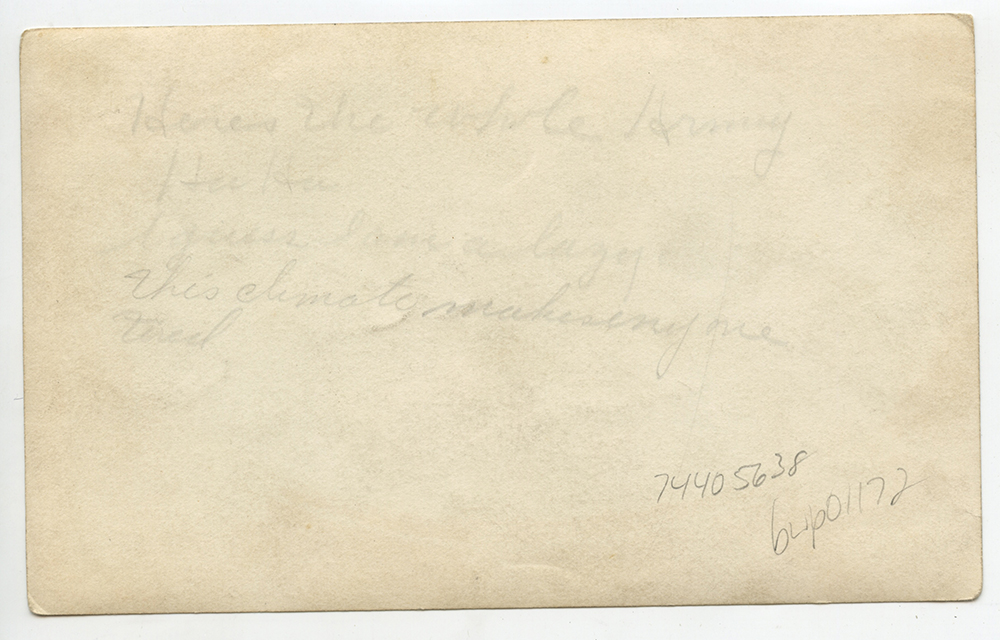 Heres the whole Army
Ha Ha
I guess I am a lazy
this climate makes anyone
tired
74405638
bwp01172